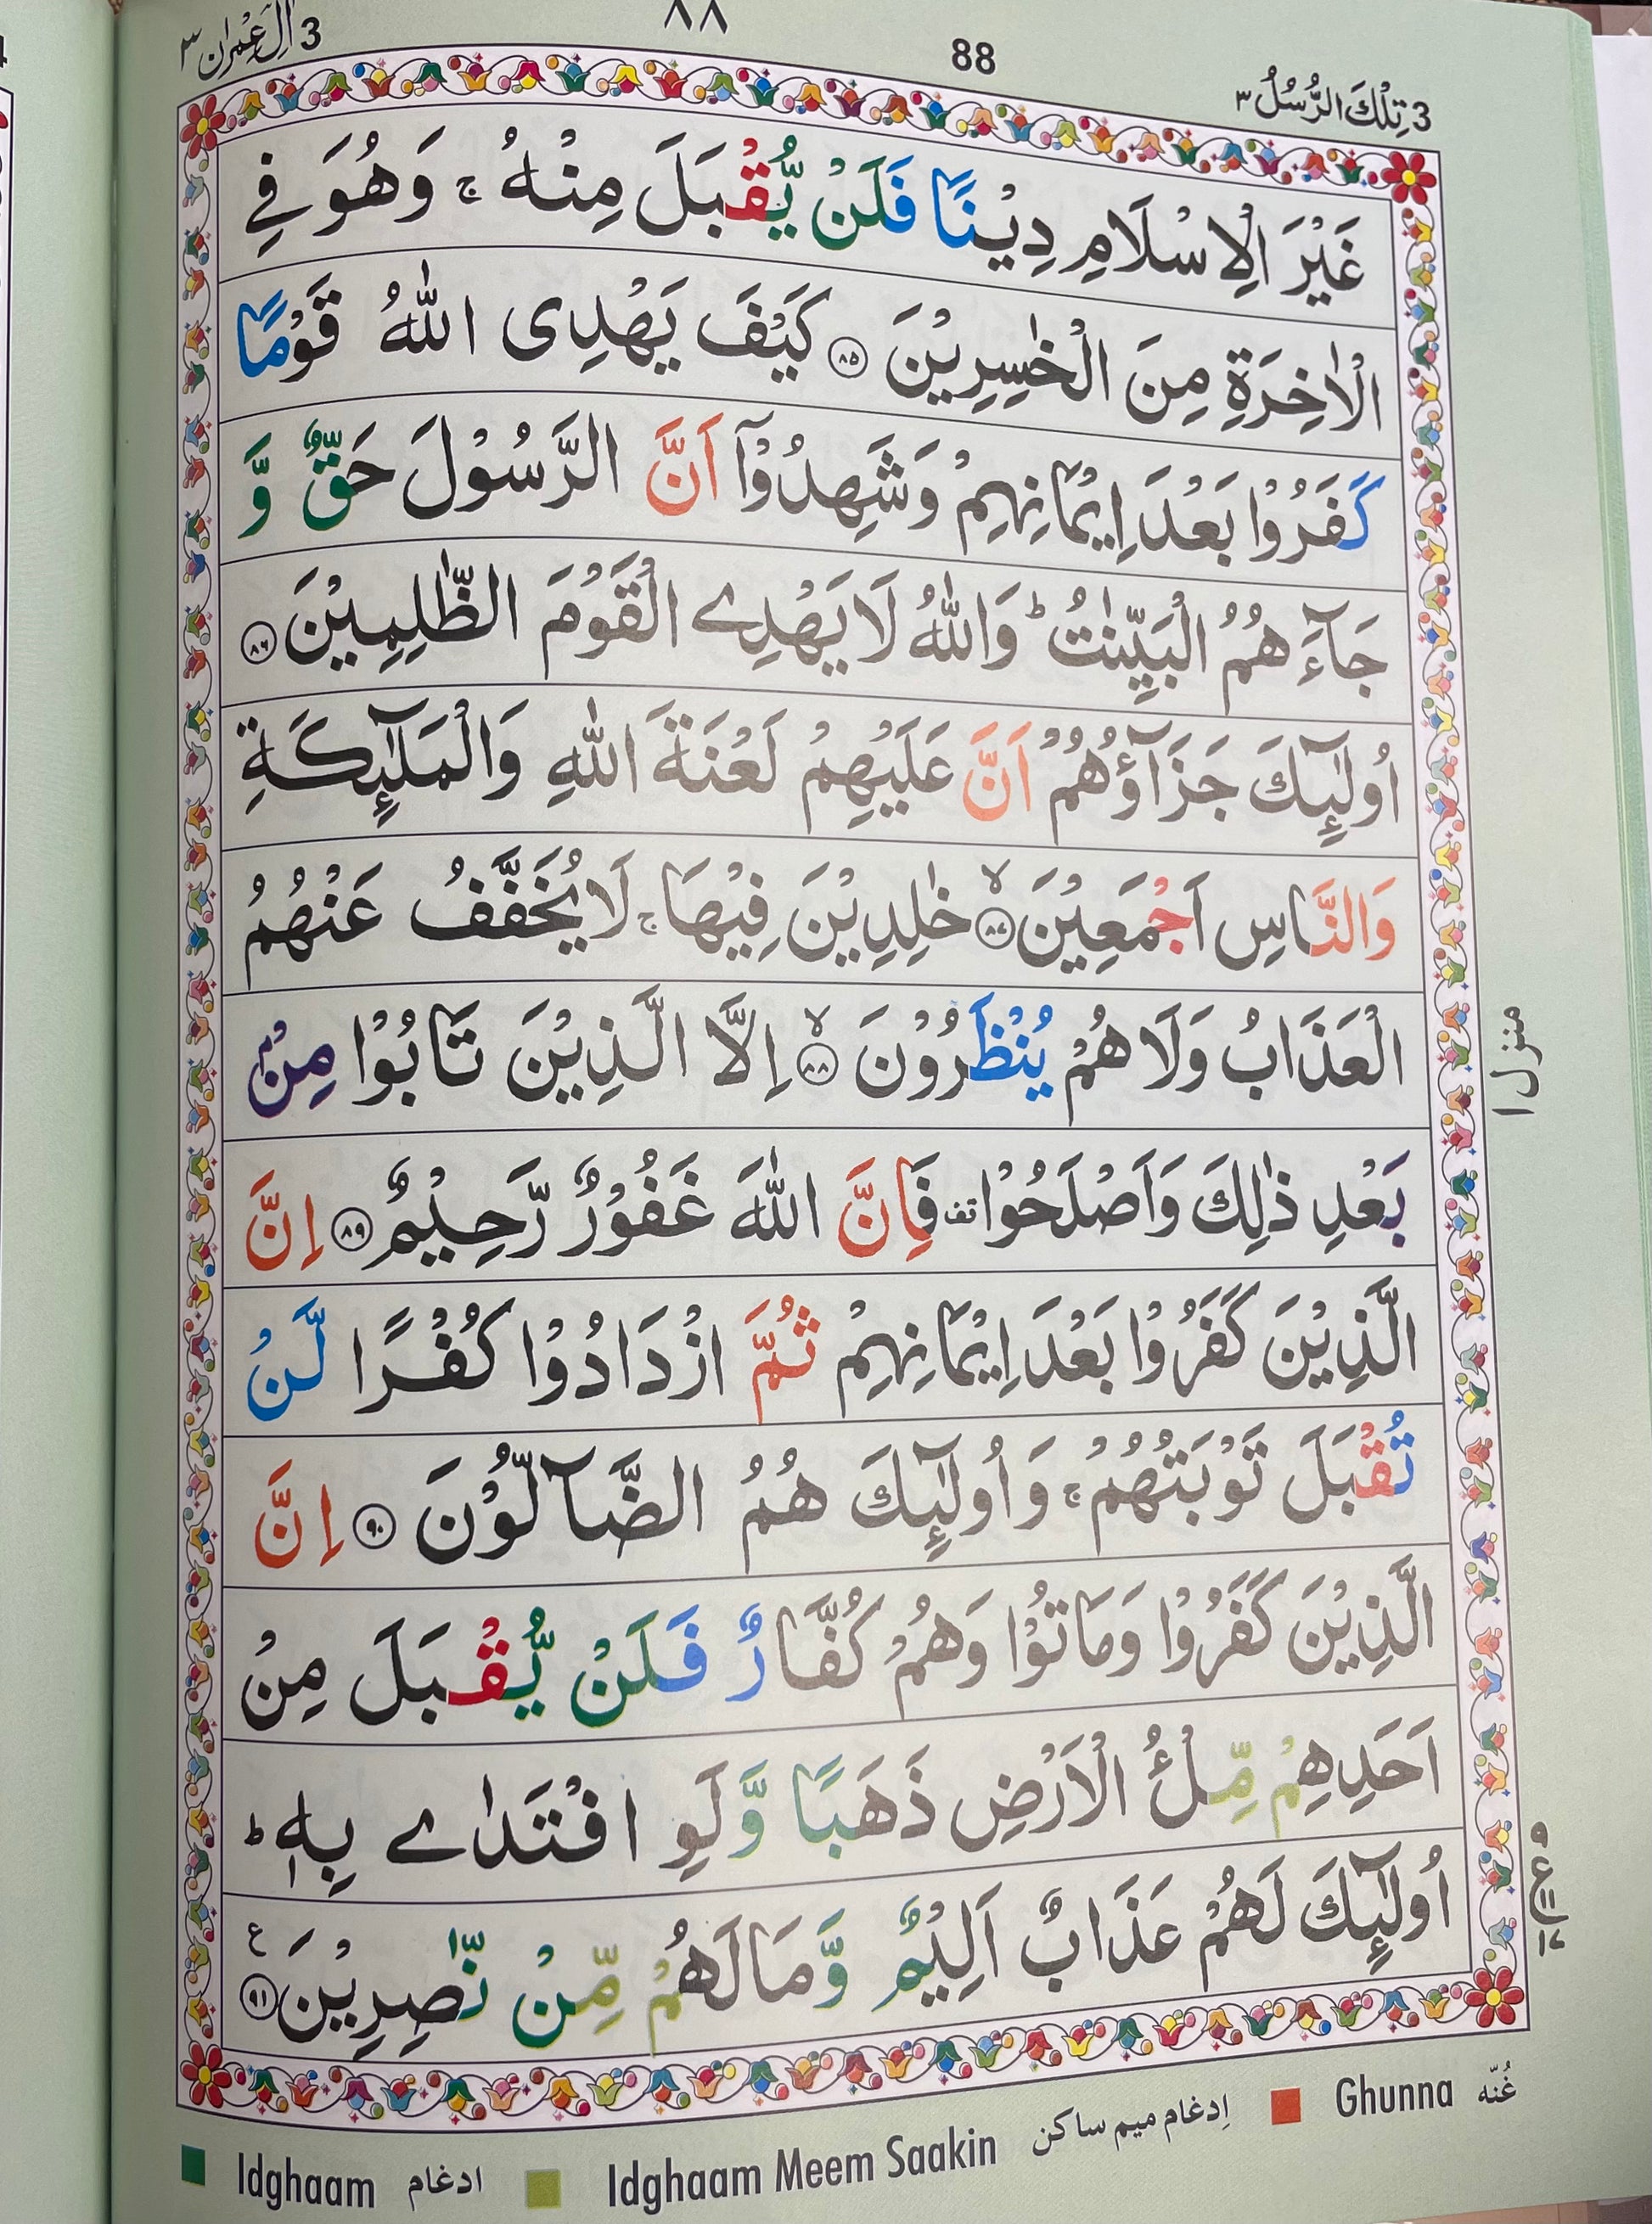 3 اٰلِ عِمْرٰن ٣
٨٨
88
3 تِلْكَ الرُّسُلُ ٣
غَيْرَ الْاِسْلَامِ دِيْنًا فَلَنْ يُّقْبَلَ مِنْهُ ۚ وَهُوَ فِي
الْاٰخِرَةِ مِنَ الْخٰسِرِيْنَ ﴿٨٥﴾ كَيْفَ يَهْدِى اللّٰهُ قَوْمًا
كَفَرُوْا بَعْدَ اِيْمَانِهِمْ وَشَهِدُوْٓا اَنَّ الرَّسُوْلَ حَقٌّ وَّ
جَآءَهُمُ الْبَيِّنٰتُ ؕ وَاللّٰهُ لَا يَهْدِے الْقَوْمَ الظّٰلِمِيْنَ ﴿٨٦﴾
اُولٰٓئِكَ جَزَآؤُهُمْ اَنَّ عَلَيْهِمْ لَعْنَةَ اللّٰهِ وَالْمَلٰٓئِكَةِ
وَالنَّاسِ اَجْمَعِيْنَ ۙ﴿٨٧﴾ خٰلِدِيْنَ فِيْهَا ۚ لَا يُخَفَّفُ عَنْهُمُ
الْعَذَابُ وَلَا هُمْ يُنْظَرُوْنَ ۙ﴿٨٨﴾ اِلَّا الَّذِيْنَ تَابُوْا مِنْۢ
بَعْدِ ذٰلِكَ وَاَصْلَحُوْا قف فَاِنَّ اللّٰهَ غَفُوْرٌ رَّحِيْمٌ ﴿٨٩﴾ اِنَّ
الَّذِيْنَ كَفَرُوْا بَعْدَ اِيْمَانِهِمْ ثُمَّ ازْدَادُوْا كُفْرًا لَّنْ
تُقْبَلَ تَوْبَتُهُمْ ۚ وَاُولٰٓئِكَ هُمُ الضَّآلُّوْنَ ﴿٩٠﴾ اِنَّ
الَّذِيْنَ كَفَرُوْا وَمَاتُوْا وَهُمْ كُفَّارٌ فَلَنْ يُّقْبَلَ مِنْ
اَحَدِهِمْ مِّلْءُ الْاَرْضِ ذَهَبًا وَّلَوِ افْتَدٰے بِهٖ ؕ
اُولٰٓئِكَ لَهُمْ عَذَابٌ اَلِيْمٌ وَّمَا لَهُمْ مِّنْ نّٰصِرِيْنَ ﴿٩١﴾ ع
منزل ١
٩ ع ١٧
Idghaam ادغام Idghaam Meem Saakin اِدغام میم ساکن Ghunna غُنّه